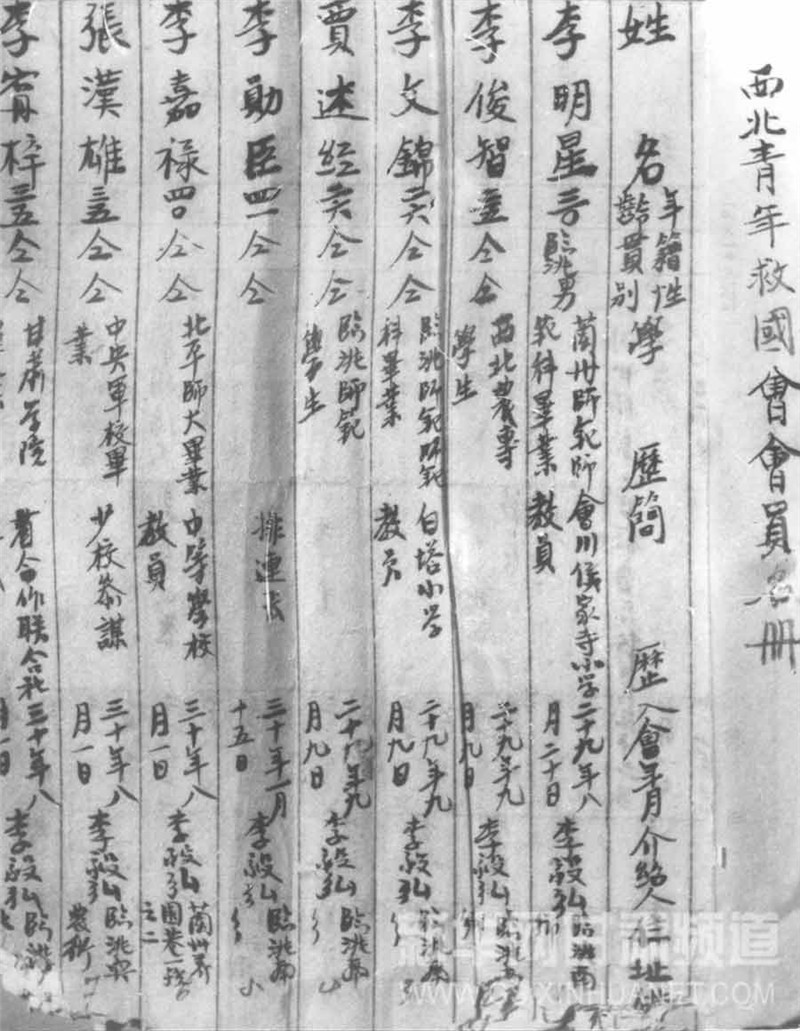 西北青年救國會會員名冊
姓名 年齡 籍貫 性別 學歷 簡歷 入會年月 介紹人 住址
李明星 三〇 臨洮 男 蘭州師範師範科畢業 會川侯家寺小學教員 二十九年八月二十日 李毅弘 臨洮南
李俊智 仝 仝 西北農專學生 二十九年九月九日 李毅弘 臨洮
李文錦 仝 仝 臨洮師範師範科畢業 白塔小学教員 二十九年九月九日 李毅弘 臨洮
賈述經 仝 仝 臨洮師範學生 二十九年九月九日 李毅弘 臨洮
李勛臣 四一 仝 仝 排連長 三十年一月十五日 李毅弘 臨洮
李嘉祿 四〇 仝 仝 北平師大畢業 中等學校教員 三十年八月一日 李毅弘 蘭州
張漢雄 三五 仝 仝 中央軍校畢業 少校參謀 三十年八月一日 李毅弘 臨洮
李梓 三五 仝 仝 甘肅学院 省合作联合社 三十年八月一日 李毅弘 臨洮
WWW.GS.XINHUANET.COM